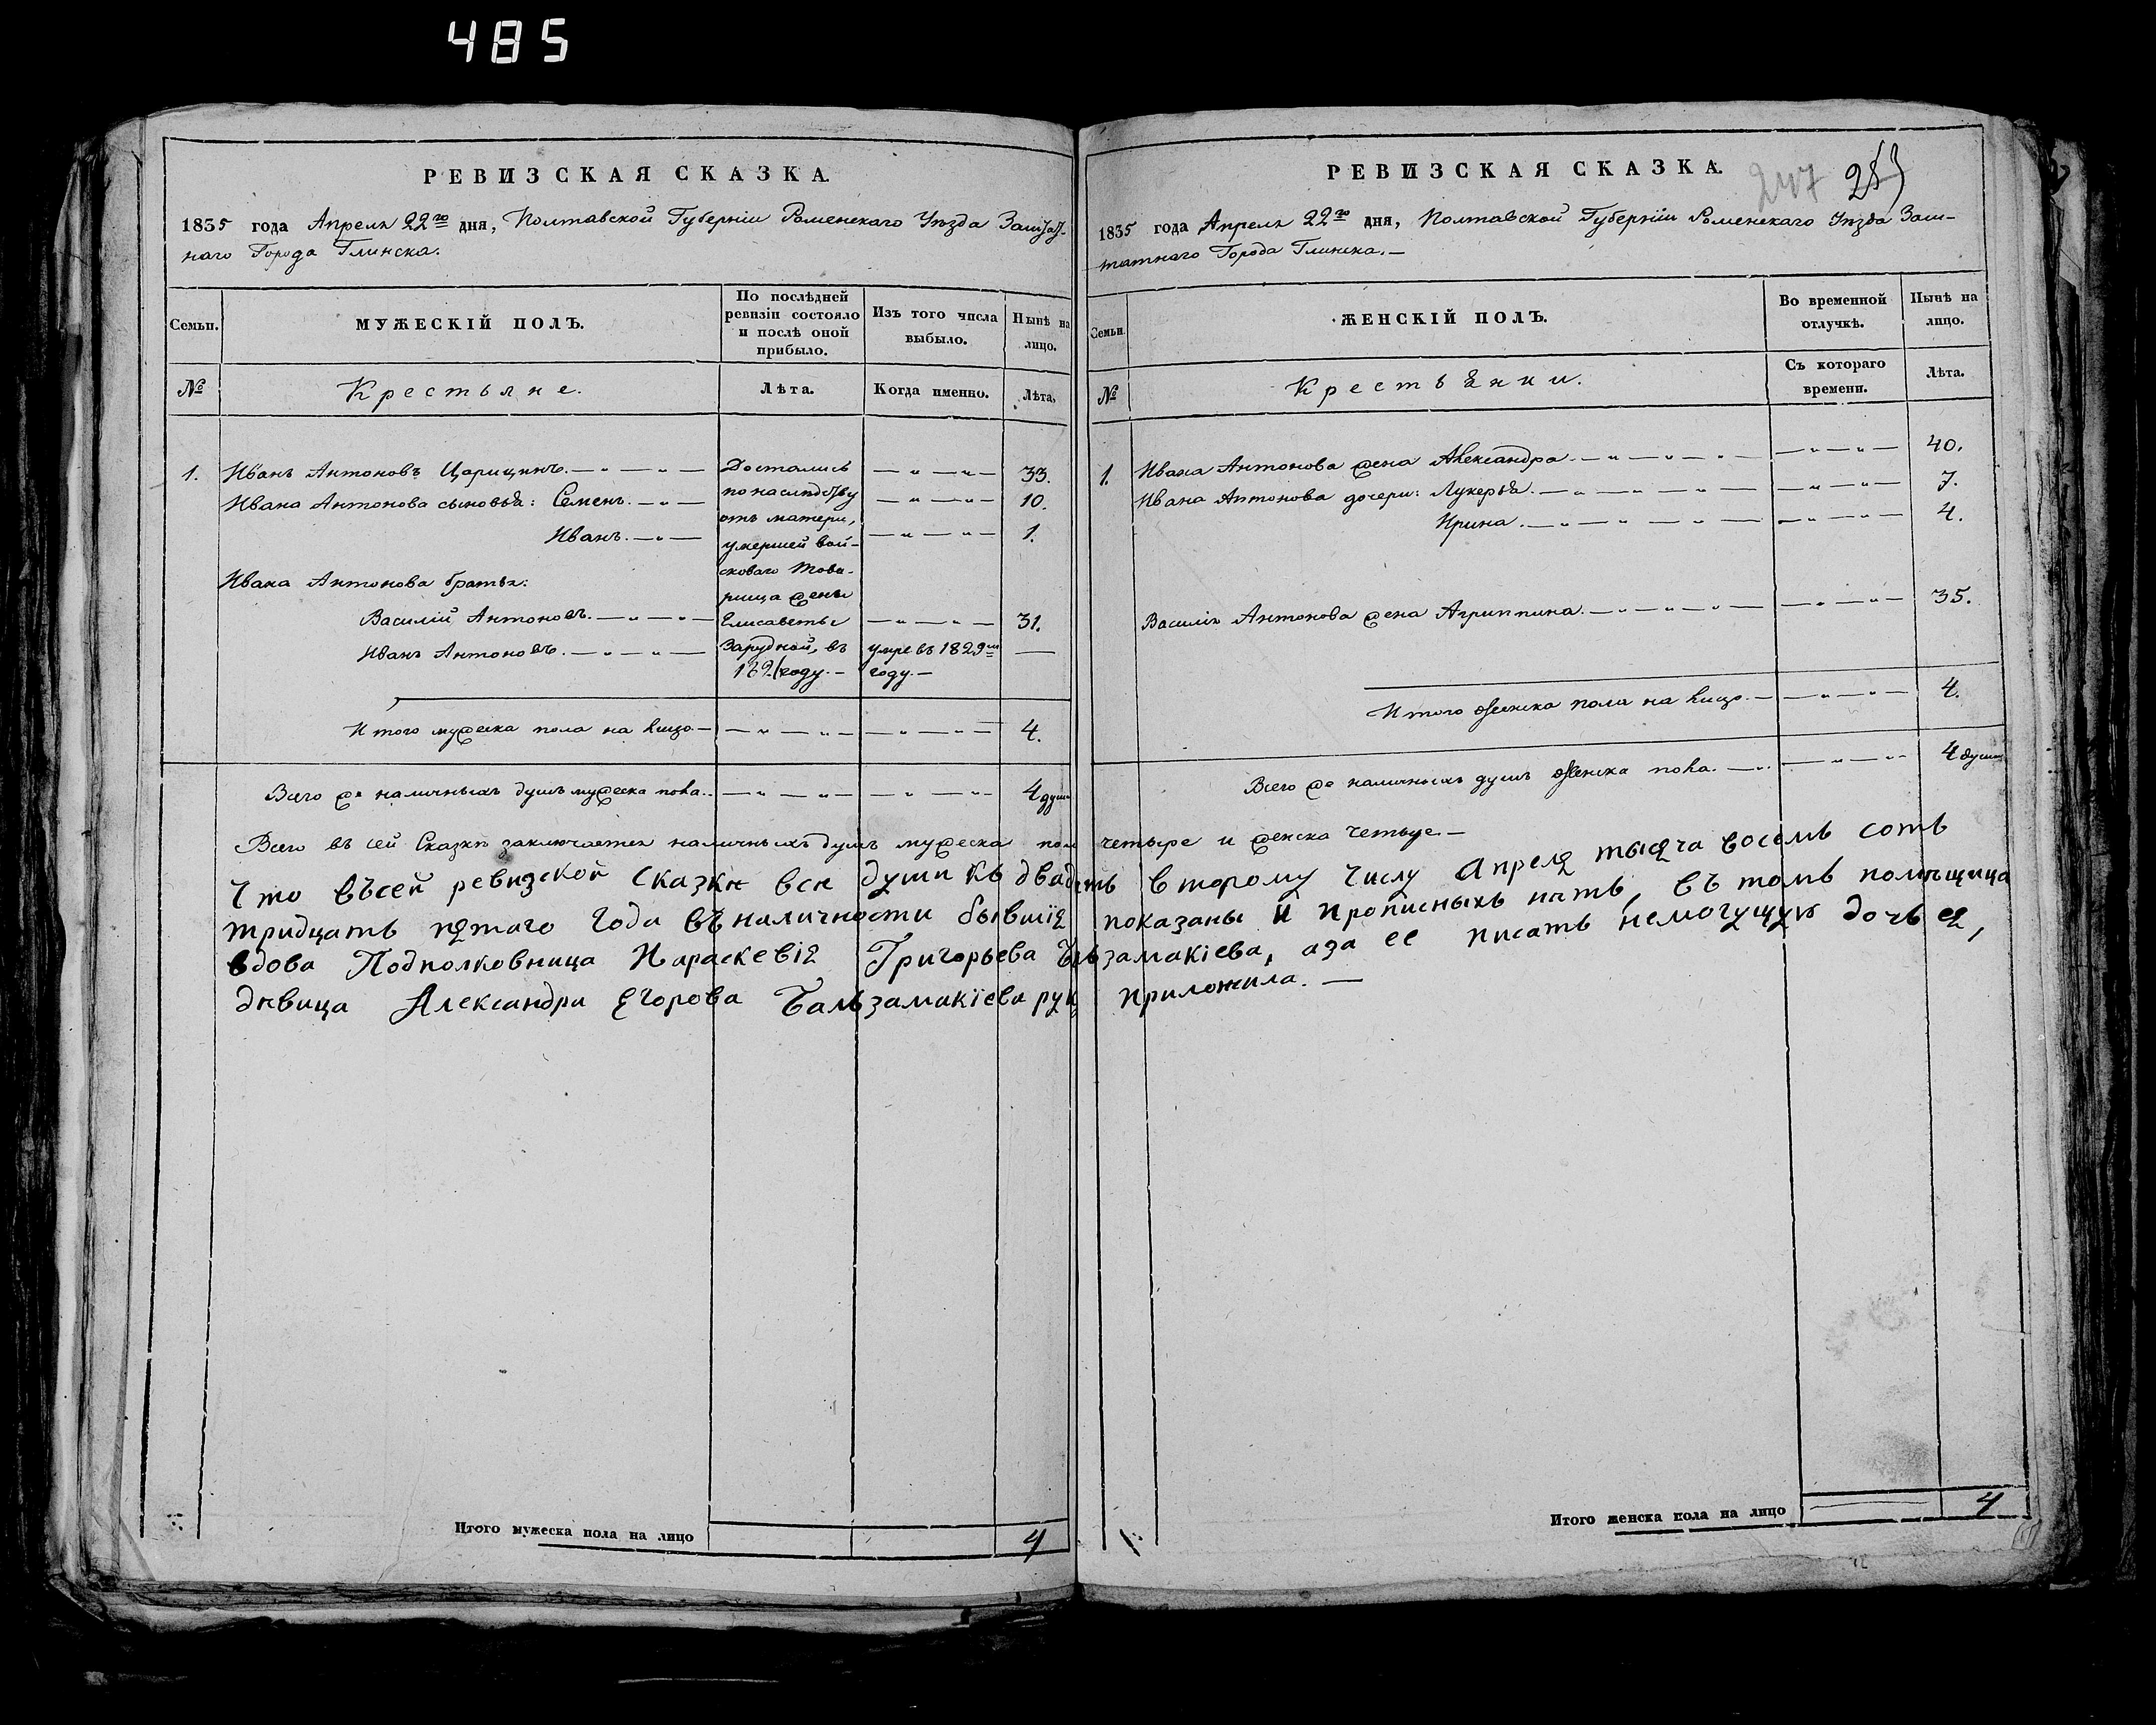 485
РЕВИЗСКАЯ СКАЗКА.
1835 года Апреля 22го дня, Полтавской Губерніи Роменскаго Уѣзда Заштат-
наго Города Глинска.
Семьи.
МУЖЕСКІЙ ПОЛЪ.
По послѣдней
ревизіи состояло
и послѣ оной
прибыло.
Изъ того числа
выбыло.
Нынѣ на
лицо.
№
Крестьяне.
Лѣта.
Когда именно.
Лѣта.
1. Иванъ Антоновъ Царицинъ. — " — " — Достались — " — " — 33.
Ивана Антонова сыновья: Семенъ. — " — по наслѣдству — " — " — 10.
отъ матери,
Иванъ. — " — умершей вой- — " — " — 1.
Ивана Антонова братья: сковаго това-
рища жены
Василій Антоновъ. — " — " — Елисаветы — " — " — 31.
Иванъ Антоновъ. — " — " — Зарудной, въ умре въ 1829м —
году. — году. —
Итого мужеска пола на лицо — — " — " — — " — " — 4.
Всего же наличныхъ душъ мужеска пола. — " — " — — " — " — 4 души
Всего въ сей Сказкѣ заключается наличныхъ душъ мужеска пола четыре и женска четыре. —
Что въ сей ревизской сказки все души къ двадцать второму числу Апреля тысяча восемь сотъ
тридцать пятаго года въ наличности бывшія показаны и прописныхъ нѣтъ, въ томъ помѣщица
вдова Подполковница Параскевія Григорьева Бальзамакіева, а за ее писать немогущую дочь ея,
дѣвица Александра Егорова Бальзамакіева руку приложила. —
Итого мужеска пола на лицо 4
РЕВИЗСКАЯ СКАЗКА.
247
1835 года Апреля 22го дня, Полтавской Губерніи Роменскаго Уѣзда Заш-
татнаго Города Глинска. —
Семьи.
ЖЕНСКІЙ ПОЛЪ.
Во временной
отлучкѣ.
Нынѣ на
лицо.
№
Крестьянки.
Съ котораго
времени.
Лѣта.
1. Ивана Антонова жена Александра. — " — " — " — — " — " — 40.
Ивана Антонова дочери: Лукерья. — " — " — " — — " — " — 7.
Ирина. — " — " — " — — " — " — 4.
Василія Антонова жена Агриппина. — " — " — " — — " — " — 35.
Итого женска пола на лицо. — — " — " — 4.
Всего же наличныхъ душъ женска пола. — " — " — " 4 души
Итого женска пола на лицо 4